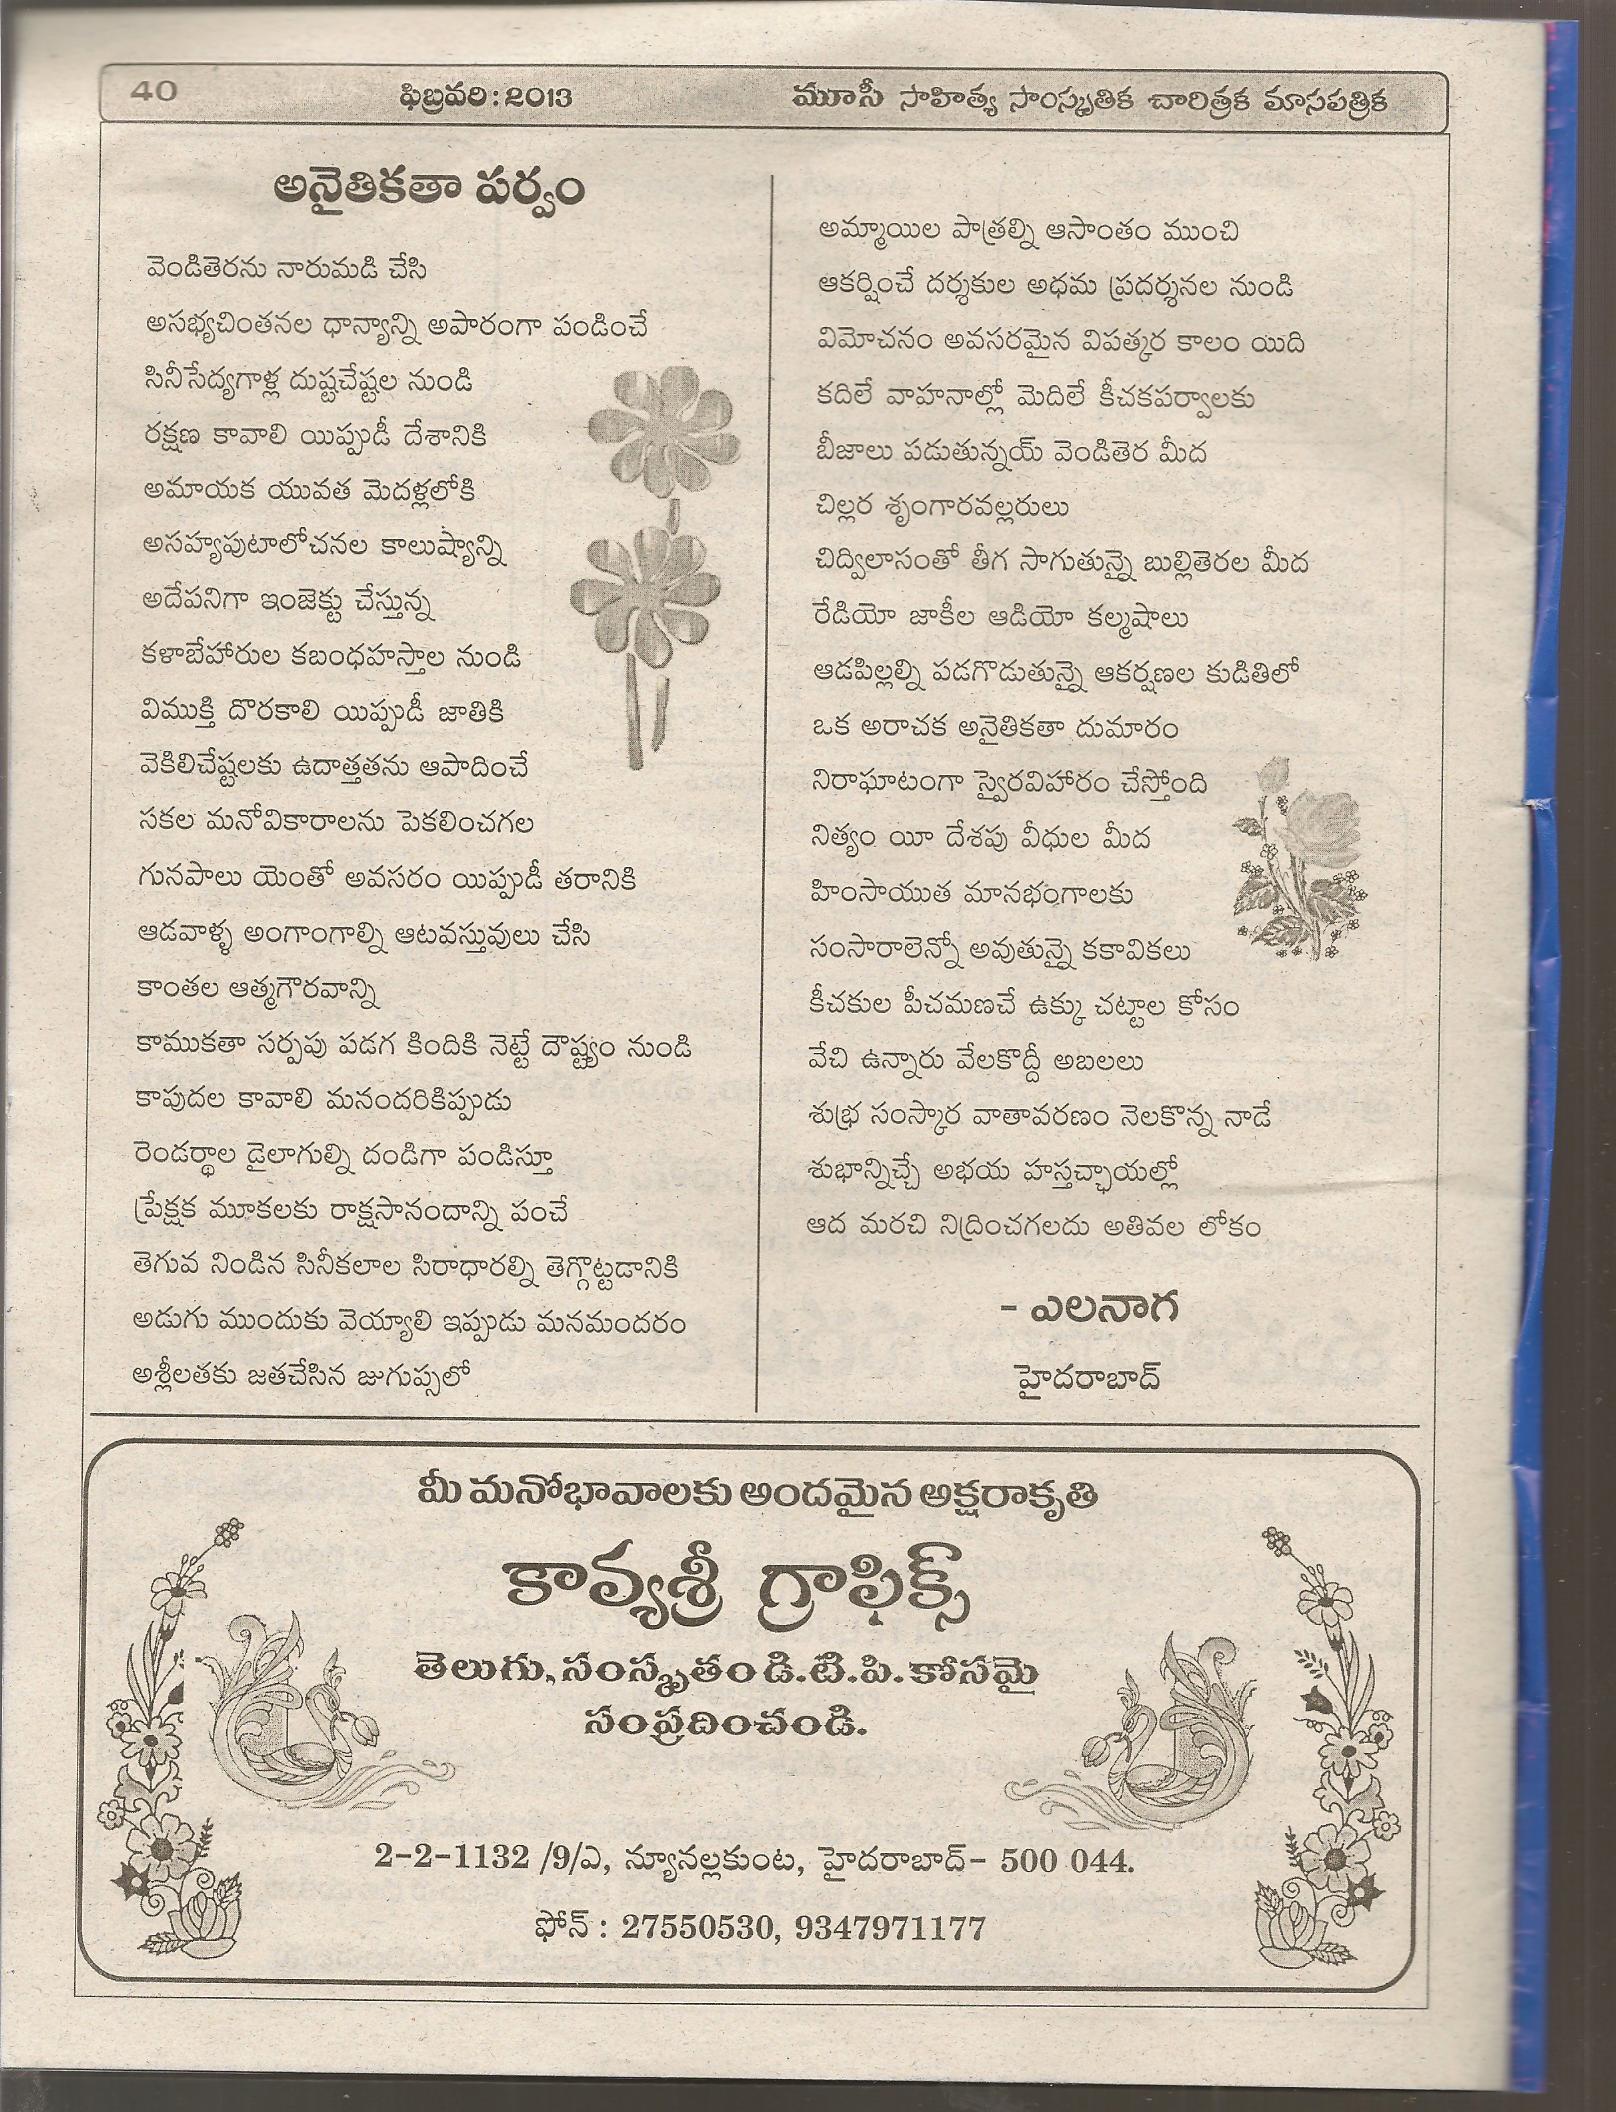 40
ఫిబ్రవరి : 2013
మూసీ సాహిత్య సాంస్కృతిక చారిత్రక మాసపత్రిక
అనైతికతా పర్వం
వెండితెరను నారుమడి చేసి
అసభ్యచింతనల ధాన్యాన్ని అపారంగా పండించే
సినీసేద్యగాళ్ల దుష్టచేష్టల నుండి
రక్షణ కావాలి యిప్పుడీ దేశానికి
అమాయక యువత మెదళ్లలోకి
అసహ్యపుటాలోచనల కాలుష్యాన్ని
అదేపనిగా ఇంజెక్టు చేస్తున్న
కళాబేహారుల కబంధహస్తాల నుండి
విముక్తి దొరకాలి యిప్పుడీ జాతికి
వెకిలిచేష్టలకు ఉదాత్తతను ఆపాదించే
సకల మనోవికారాలను పెకలించగల
గునపాలు యెంతో అవసరం యిప్పుడీ తరానికి
ఆడవాళ్ళ అంగాంగాల్ని ఆటవస్తువులు చేసి
కాంతల ఆత్మగౌరవాన్ని
కాముకతా సర్పపు పడగ కిందికి నెట్టే దౌష్ట్యం నుండి
కాపుదల కావాలి మనందరికిప్పుడు
రెండర్థాల డైలాగుల్ని దండిగా పండిస్తూ
ప్రేక్షక మూకలకు రాక్షసానందాన్ని పంచే
తెగువ నిండిన సినీకలాల సిరాధారల్ని తెగ్గొట్టడానికి
అడుగు ముందుకు వెయ్యాలి ఇప్పుడు మనమందరం
అశ్లీలతకు జతచేసిన జుగుప్సలో
అమ్మాయిల పాత్రల్ని ఆసాంతం ముంచి
ఆకర్షించే దర్శకుల అధమ ప్రదర్శనల నుండి
విమోచనం అవసరమైన విపత్కర కాలం యిది
కదిలే వాహనాల్లో మెదిలే కీచకపర్వాలకు
బీజాలు పడుతున్నయ్ వెండితెర మీద
చిల్లర శృంగారవల్లరులు
చిద్విలాసంతో తీగ సాగుతున్నై బుల్లితెరల మీద
రేడియో జాకీల ఆడియో కల్మషాలు
ఆడపిల్లల్ని పడగొడుతున్నై ఆకర్షణల కుడితిలో
ఒక అరాచక అనైతికతా దుమారం
నిరాఘాటంగా స్వైరవిహారం చేస్తోంది
నిత్యం యీ దేశపు వీధుల మీద
హింసాయుత మానభంగాలకు
సంసారాలెన్నో అవుతున్నై కకావికలు
కీచకుల పీచమణచే ఉక్కు చట్టాల కోసం
వేచి ఉన్నారు వేలకొద్దీ అబలలు
శుభ్ర సంస్కార వాతావరణం నెలకొన్న నాడే
శుభాన్నిచ్చే అభయ హస్తచ్ఛాయల్లో
ఆద మరచి నిద్రించగలదు అతివల లోకం
- ఎలనాగ
హైదరాబాద్
మీ మనోభావాలకు అందమైన అక్షరాకృతి
కావ్యశ్రీ గ్రాఫిక్స్
తెలుగు, సంస్కృతం డి.టి.పి. కోసమై
సంప్రదించండి.
2-2-1132 /9/ఎ, న్యూనల్లకుంట, హైదరాబాద్- 500 044.
ఫోన్ : 27550530, 9347971177